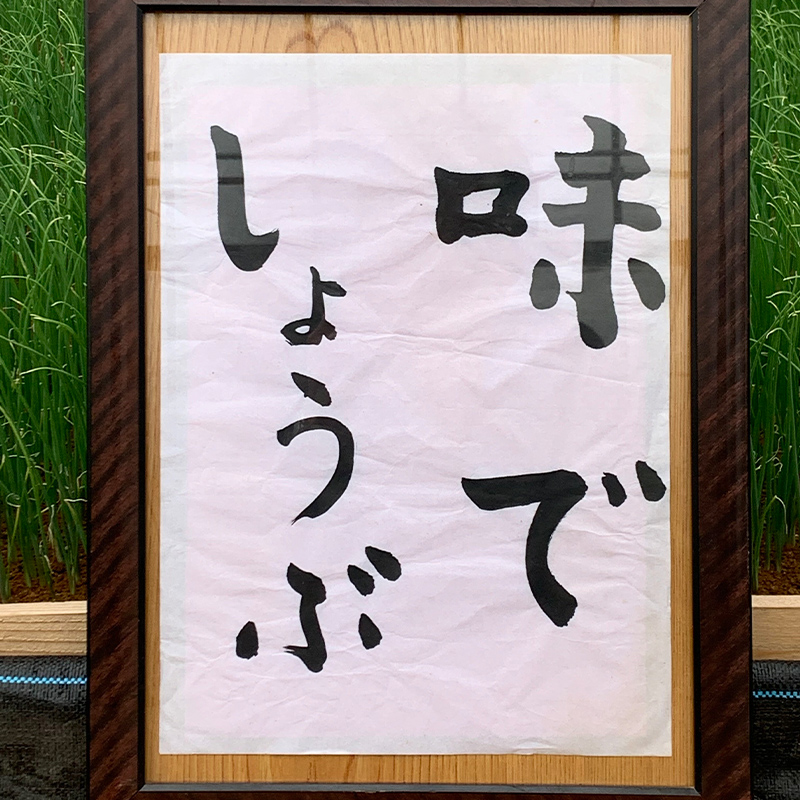 味で
しょうぶ